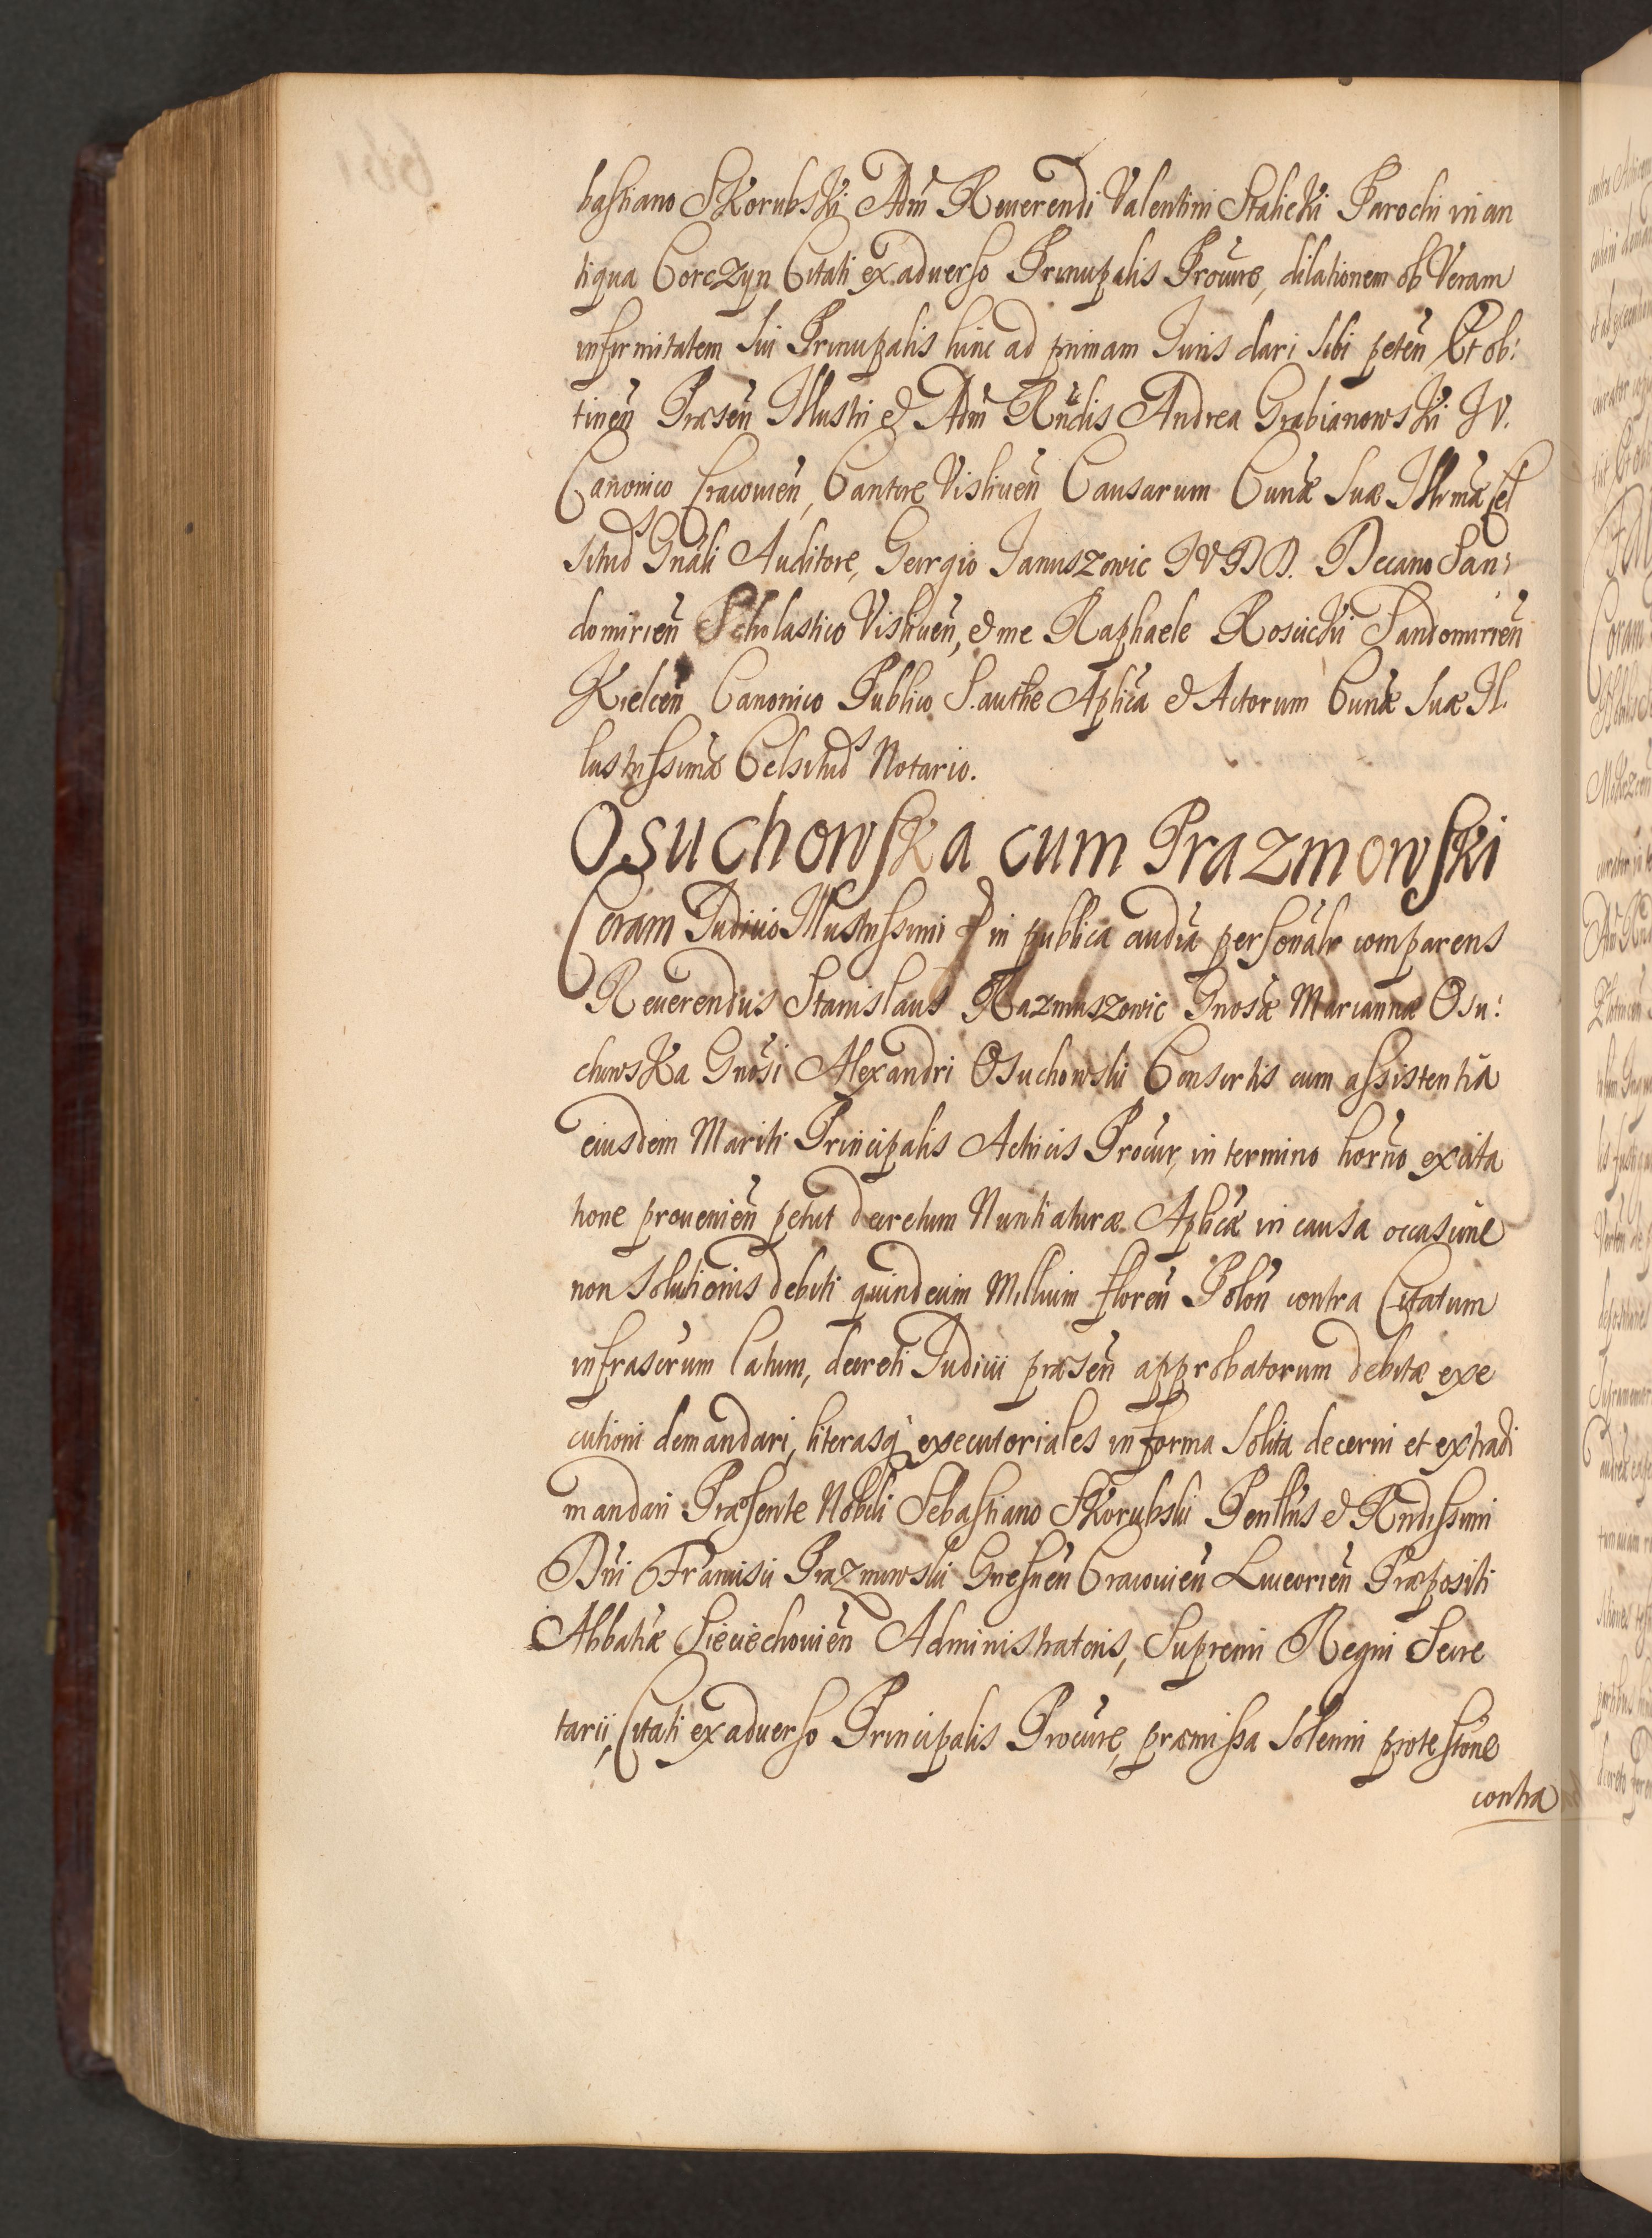 bastiano Skorubski Adm̃ Reuerendi Valentini Stalicki Parochi in an
tiqua Corczyn Citati ex aduerso Principalis Procũre, dilationem ob Veram
infirmitatem sui Principalis hinc ad primam Iuris dari sibi peteñ Et ob:
tineñ Præseñ Illustri & Adm̃ Rñdis Andrea Grabianowski IV.
Canonico Cracouieñ, Cantore Visliceñ Causarum Curiæ Suæ Illr̃mæ Cel
situd Gnãli Auditore, Georgio Januszowic IVDD. Decano San:
domirieñ Scholastico Visliceñ, & me Raphaele Rosiicki Sandomirieñ
Kielceñ Canonico Publico S. authe Aplĩca & Actorum Curiæ Suæ Il.
lustrissimæ Celsitud Notario.
Osuchowska cum Prazmowski
Coram Judicio Illustrissimi & in publica audĩa persoñalr comparens
Reuerendus Stanislaus Razmuszowic Gnõsæ Mariannæ Osu:
chowska Gnõsi Alexandri Osuchowski Consortis cum assistentia
eiusdem Mariti Principalis Actricis Procur, in termino horño ex cita
tione proueñieñ petiit decretum Nuntiaturæ Aplicæ in causa occasiõne
non solutionis debiti quindecim Millium floreñ Poloñ contra Citatum
infrascrum latum, decreti Judicii præseñ approbatorum debitæ exe
cutioni demandari, literasq̃ executoriales in forma solita decerni et extradi
mandari Præsente Nobili Sebastiano Skorubski Perillñs & Rndissimi
Dñi Francisci Prazmowski Gnesneñ Cracouieñ Luceorieñ Præpositi
Abbatiæ Sieciechouieñ Administratoris, Supremi Regni Secre
tarii, Citati ex aduerso Principalis Procũre, præmissa solenni protestõne
contra